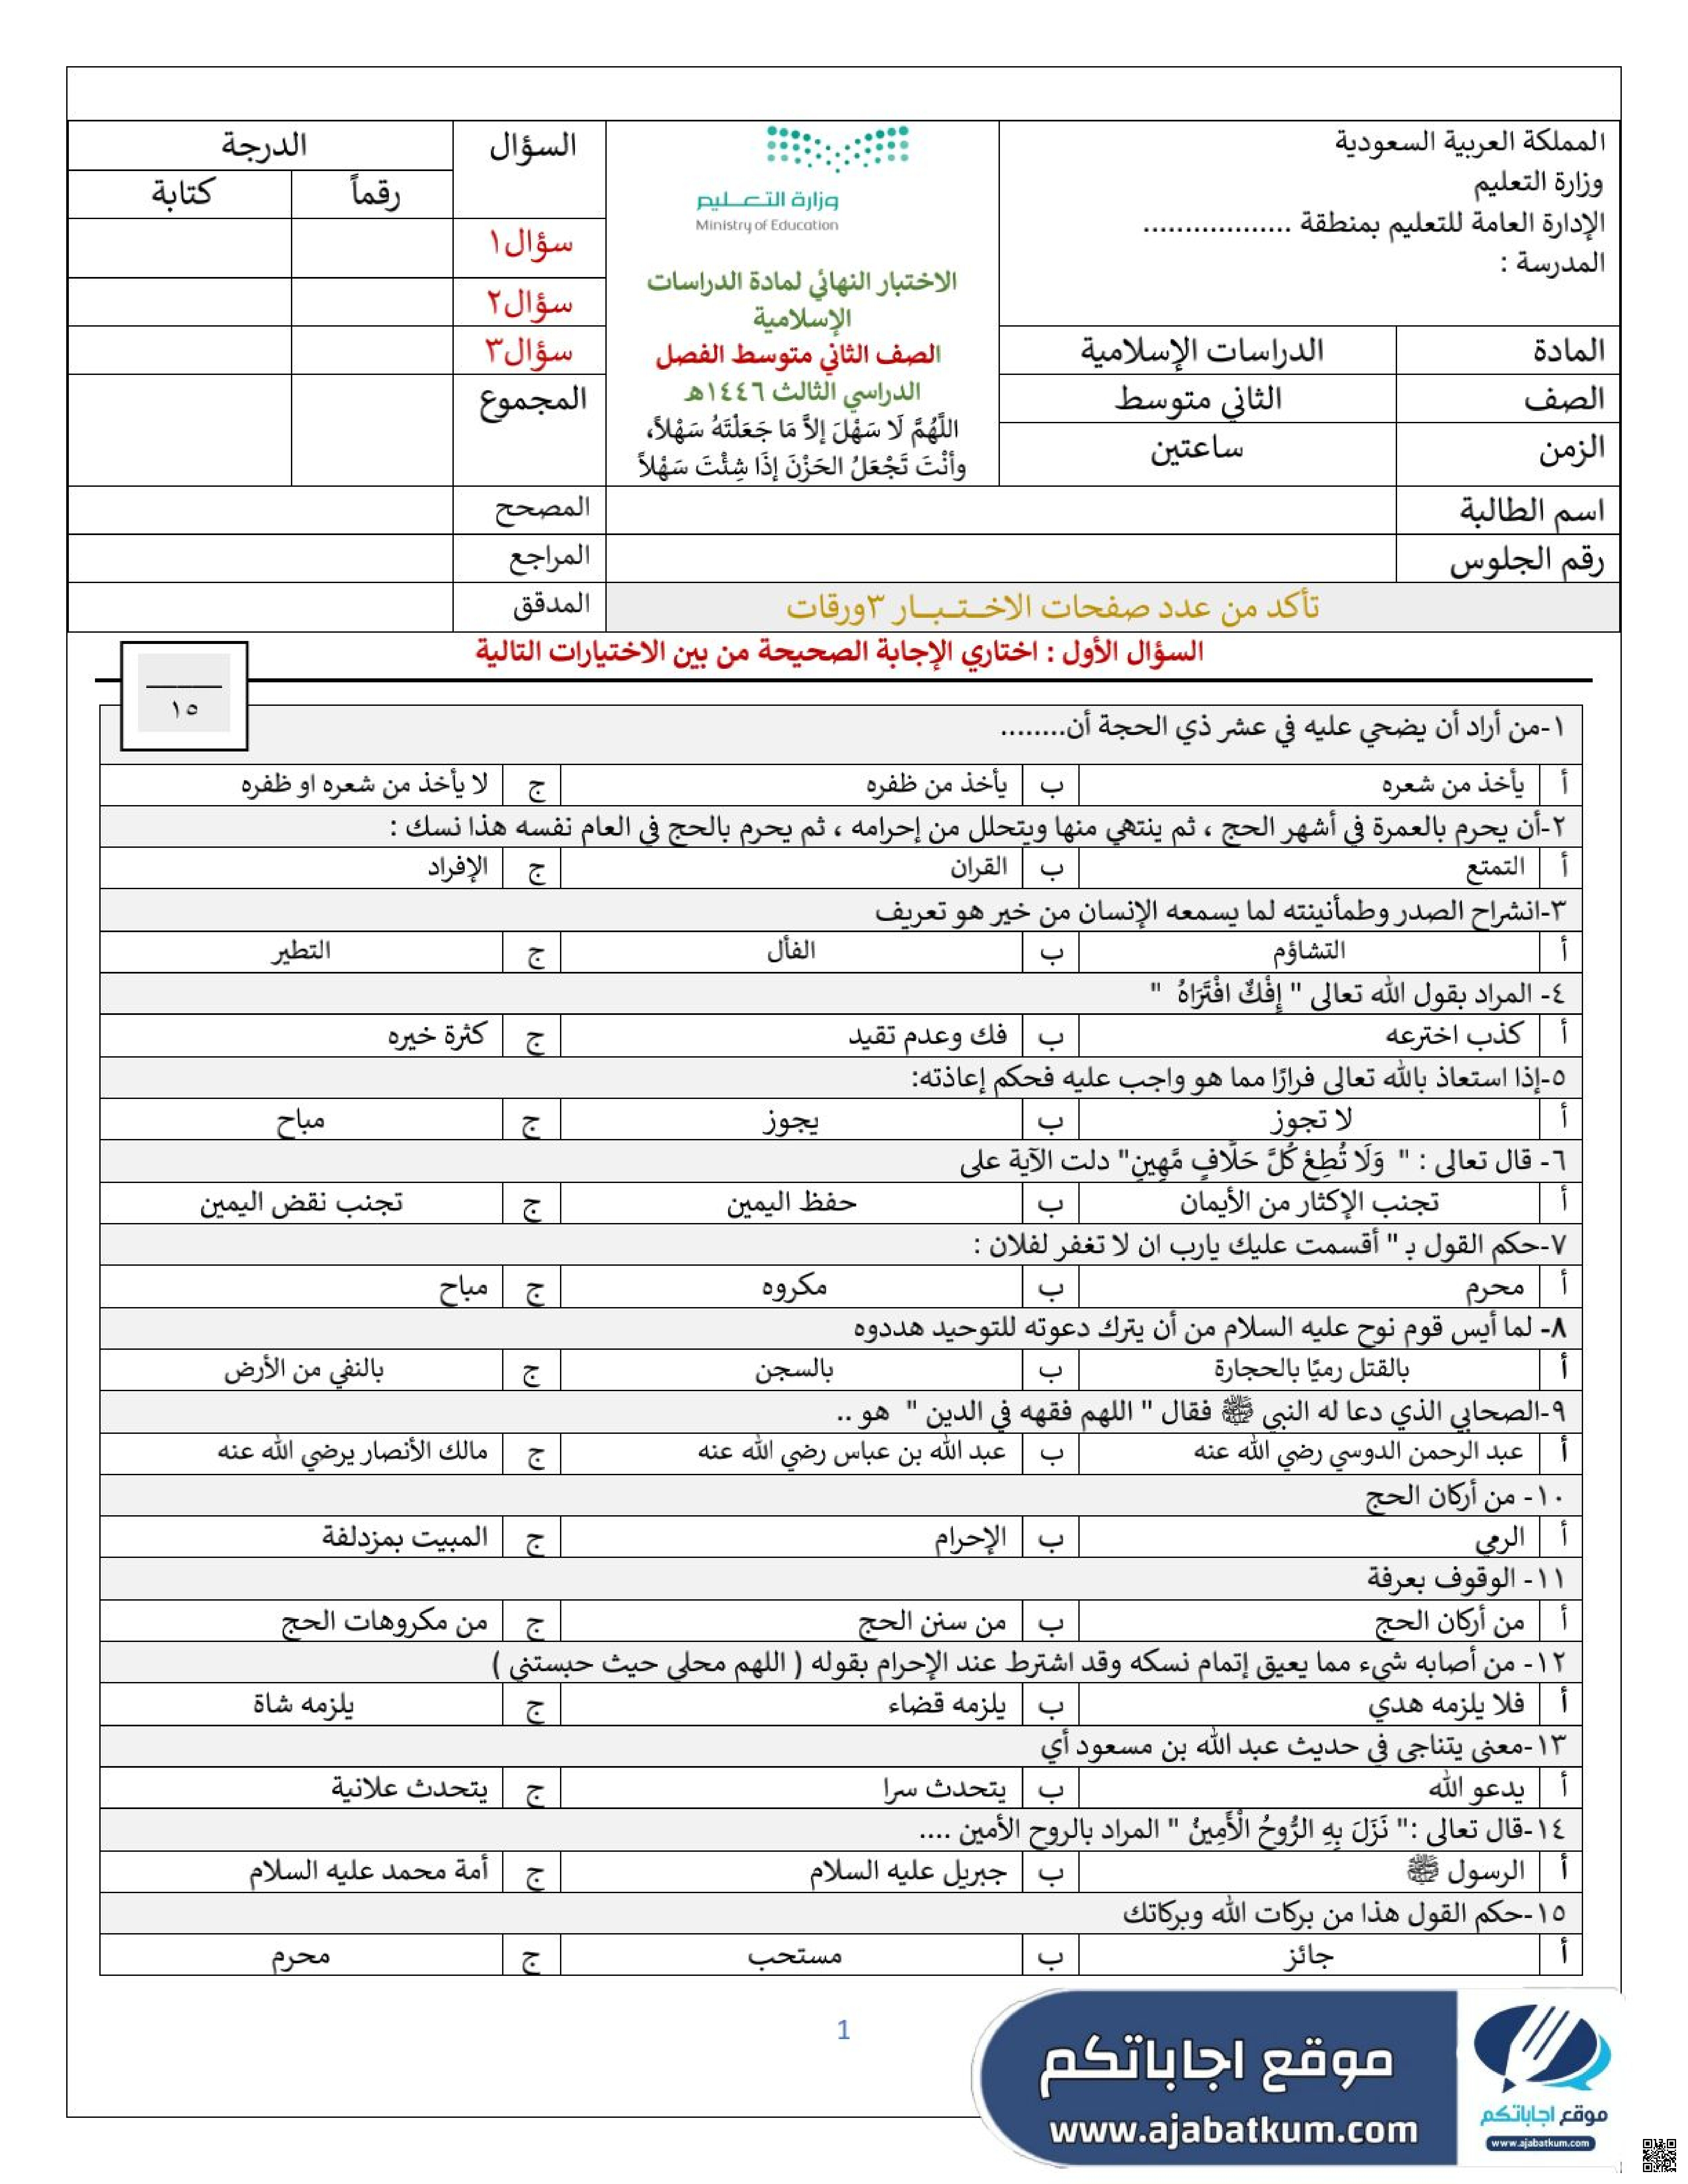 المملكة العربية السعودية
وزارة التعليم
الإدارة العامة للتعليم بمنطقة ..................
المدرسة :
وزارة التعـــليم
Ministry of Education
الاختبار النهائي لمادة الدراسات
الإسلامية
الصف الثاني متوسط الفصل
الدراسي الثالث ١٤٤٦هـ
اللَّهُمَّ لَا سَهْلَ إلاَّ مَا جَعَلْتَهُ سَهْلاً،
وأنْتَ تَجْعَلُ الحَزْنَ إذَا شِئْتَ سَهْلاً
السؤال الدرجة
رقماً كتابة
سؤال١
سؤال٢
سؤال٣
المجموع
المادة الدراسات الإسلامية
الصف الثاني متوسط
الزمن ساعتين
اسم الطالبة المصحح
رقم الجلوس المراجع
تأكد من عدد صفحات الاخـتـبـار ٣ورقات المدقق
السؤال الأول : اختاري الإجابة الصحيحة من بين الاختيارات التالية
١٥
١-من أراد أن يضحي عليه في عشر ذي الحجة أن........
أ يأخذ من شعره ب يأخذ من ظفره ج لا يأخذ من شعره او ظفره
٢-أن يحرم بالعمرة في أشهر الحج ، ثم ينتهي منها ويتحلل من إحرامه ، ثم يحرم بالحج في العام نفسه هذا نسك :
أ التمتع ب القران ج الإفراد
٣-انشراح الصدر وطمأنينته لما يسمعه الإنسان من خير هو تعريف
أ التشاؤم ب الفأل ج التطير
٤- المراد بقول الله تعالى " إِفْكٌ افْتَرَاهُ "
أ كذب اخترعه ب فك وعدم تقيد ج كثرة خيره
٥-إذا استعاذ بالله تعالى فرارًا مما هو واجب عليه فحكم إعاذته:
أ لا تجوز ب يجوز ج مباح
٦- قال تعالى : " وَلَا تُطِعْ كُلَّ حَلَّافٍ مَّهِينٍ" دلت الآية على
أ تجنب الإكثار من الأيمان ب حفظ اليمين ج تجنب نقض اليمين
٧-حكم القول بـ " أقسمت عليك يارب ان لا تغفر لفلان :
أ محرم ب مكروه ج مباح
٨- لما أيس قوم نوح عليه السلام من أن يترك دعوته للتوحيد هددوه
أ بالقتل رميًا بالحجارة ب بالسجن ج بالنفي من الأرض
٩-الصحابي الذي دعا له النبي ﷺ فقال " اللهم فقهه في الدين " هو ..
أ عبد الرحمن الدوسي رضي الله عنه ب عبد الله بن عباس رضي الله عنه ج مالك الأنصار يرضي الله عنه
١٠- من أركان الحج
أ الرمي ب الإحرام ج المبيت بمزدلفة
١١- الوقوف بعرفة
أ من أركان الحج ب من سنن الحج ج من مكروهات الحج
١٢- من أصابه شيء مما يعيق إتمام نسكه وقد اشترط عند الإحرام بقوله ( اللهم محلي حيث حبستني )
أ فلا يلزمه هدي ب يلزمه قضاء ج يلزمه شاة
١٣-معنى يتناجى في حديث عبد الله بن مسعود أي
أ يدعو الله ب يتحدث سرا ج يتحدث علانية
١٤-قال تعالى :" نَزَلَ بِهِ الرُّوحُ الْأَمِينُ " المراد بالروح الأمين ....
أ الرسول ﷺ ب جبريل عليه السلام ج أمة محمد عليه السلام
١٥-حكم القول هذا من بركات الله وبركاتك
أ جائز ب مستحب ج محرم
1
موقع اجاباتكم
www.ajabatkum.com
موقع اجاباتكم
www.ajabatkum.com